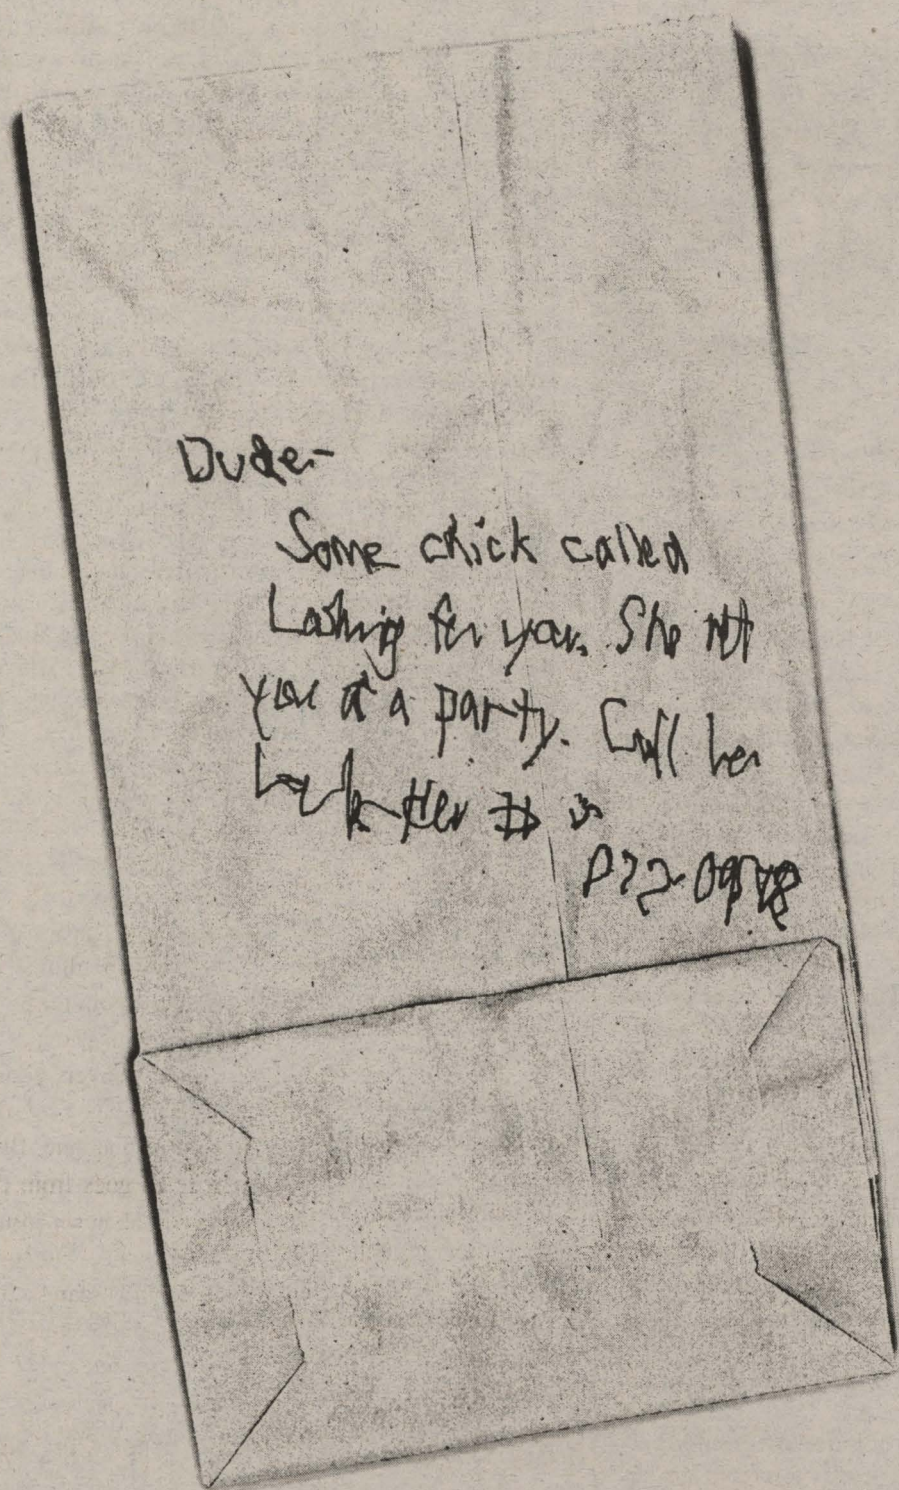 Dude-
Some chick called
Looking for you. She met
you at a party. Call her
back-Her # is